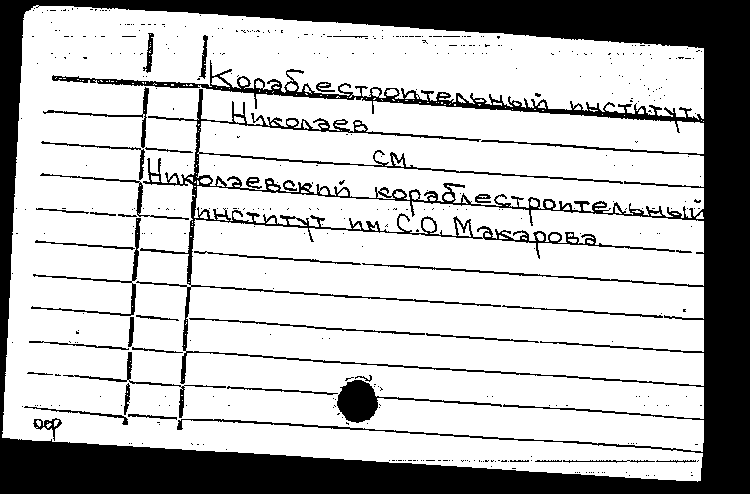 Кораблестроительный институт,
Николаев
см.
Николаевский кораблестроительный
институт им. С.О. Макарова.